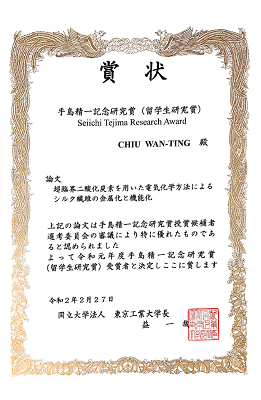 賞状
手島精一記念研究賞(留学生研究賞)
Seiichi Tejima Research Award
CHIU WAN-TING 殿
論文
超臨界二酸化炭素を用いた電気化学方法による
シルク繊維の金属化と機能化
上記の論文は手島精一記念研究賞授賞候補者
選考委員会の審議により特に優れたものであ
ると認められました
よって令和元年度手島精一記念研究賞
(留学生研究賞)受賞者と決定しここに賞します
令和2年2月27日
国立大学法人 東京工業大学長
益 一哉